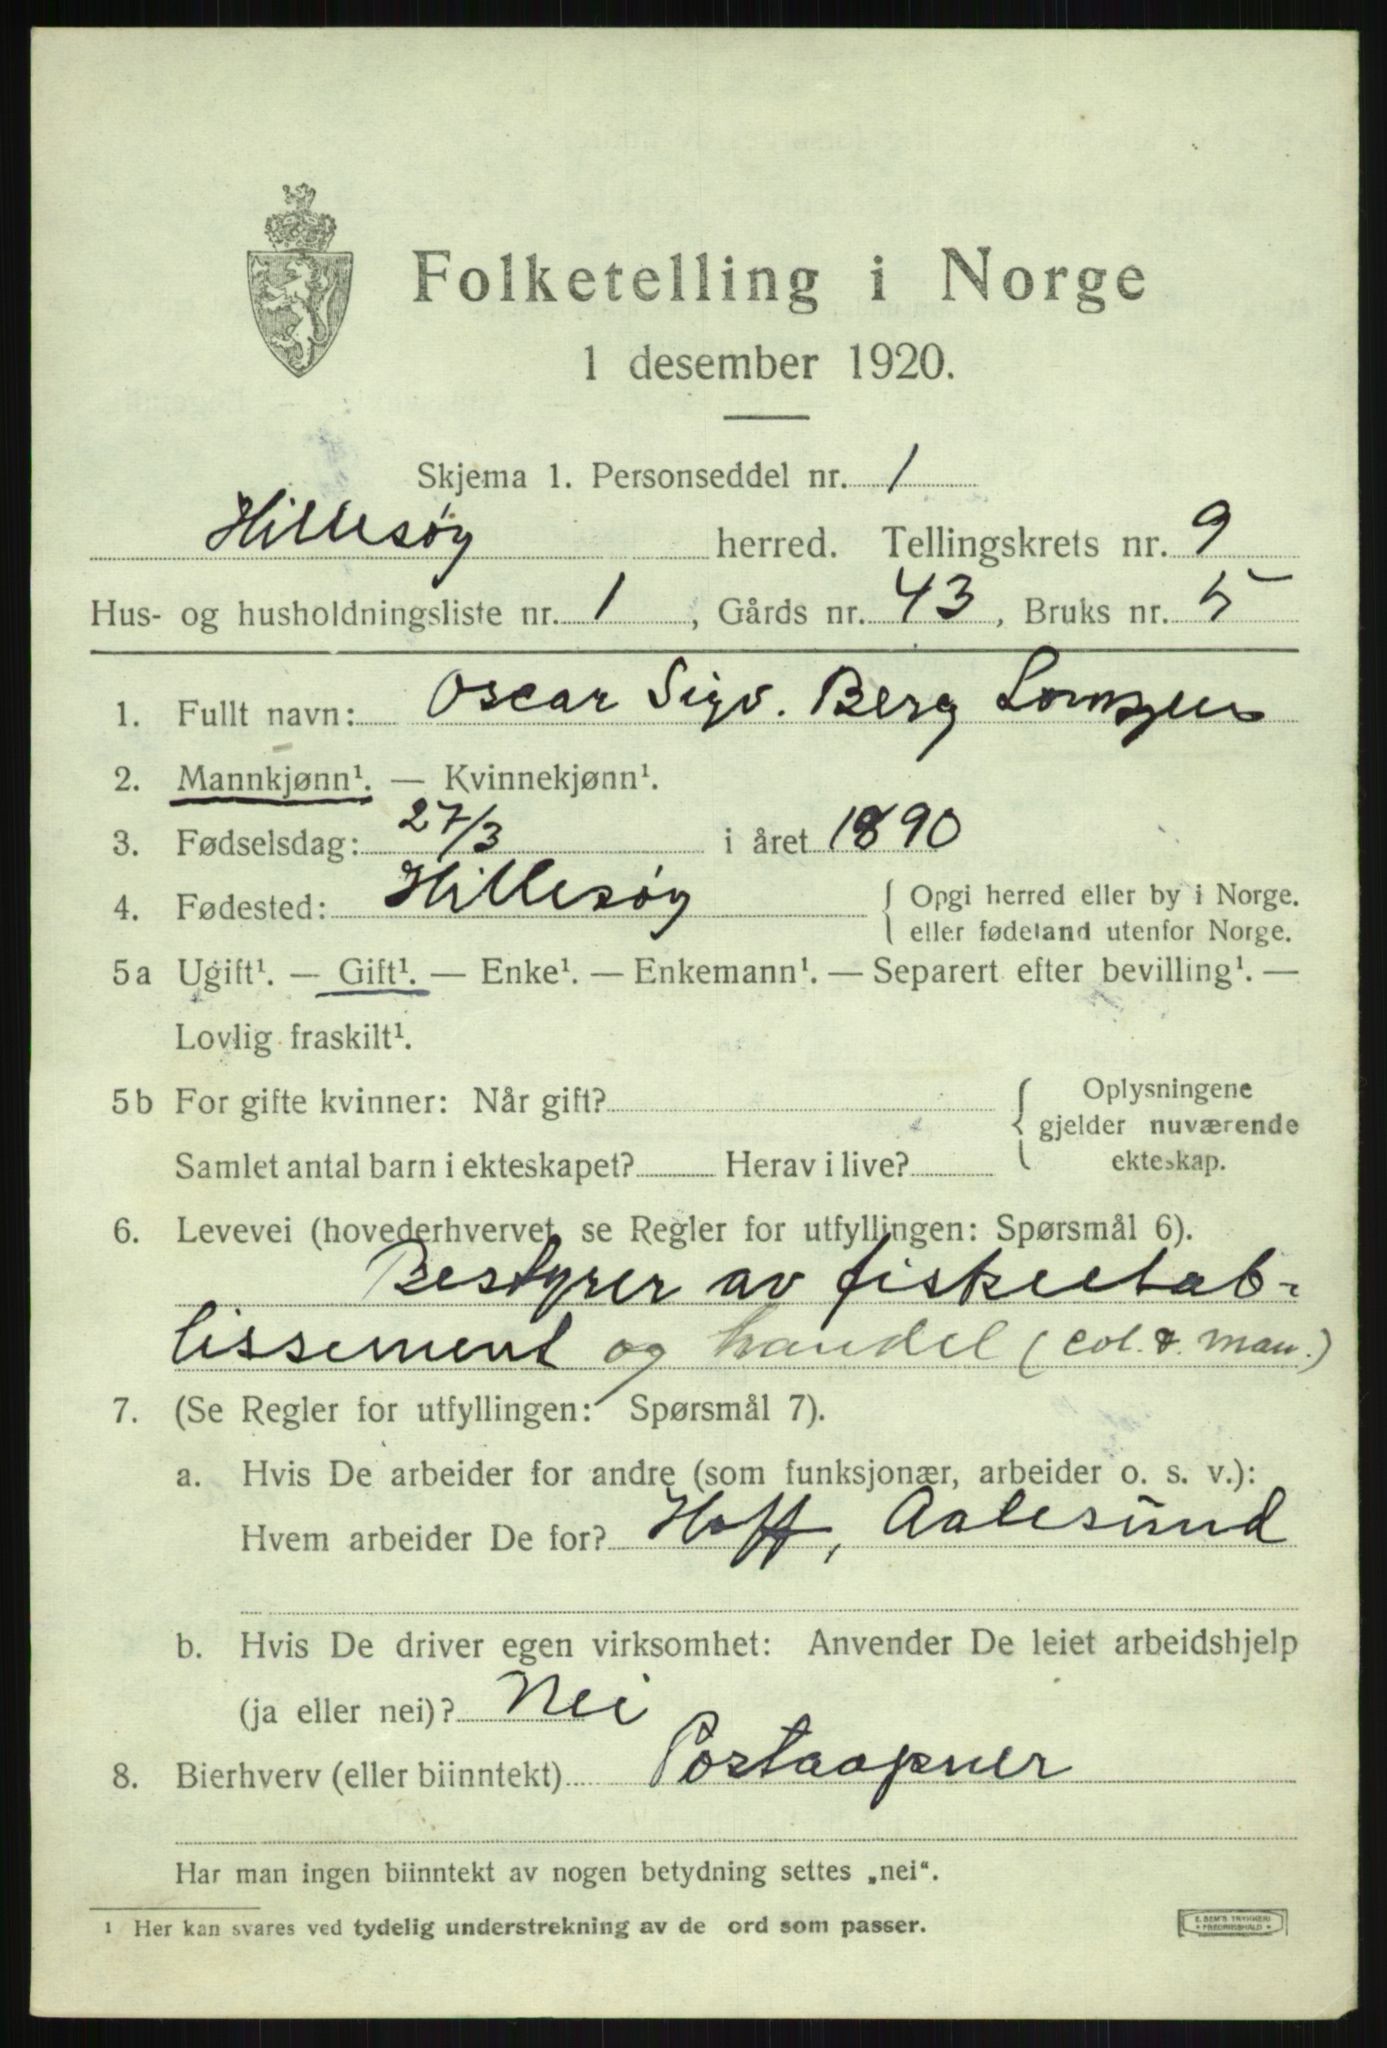 Folketelling i Norge
1 desember 1920.
Skjema 1. Personseddel nr. 1
Hillesøy herred. Tellingskrets nr. 9
Hus- og husholdningsliste nr. 1, Gårds nr. 43, Bruks nr. 5
1. Fullt navn: Oscar Sigv. Berg Lorentzen
2. Mannkjønn¹. — Kvinnekjønn¹.
3. Fødselsdag: 27/3 i året 1890
4. Fødested: Hillesøy { Opgi herred eller by i Norge.
eller fødeland utenfor Norge.
5a Ugift¹. — Gift¹. — Enke¹. — Enkemann¹. — Separert efter bevilling¹. —
Lovlig fraskilt¹.
5b For gifte kvinner: Når gift? { Oplysningene
gjelder nuværende
Samlet antal barn i ekteskapet? Herav i live? ekteskap.
6. Levevei (hovederhvervet, se Regler for utfyllingen: Spørsmål 6).
Bestyrer av fisketab-
lissement og handel (col. & man.)
7. (Se Regler for utfyllingen: Spørsmål 7).
a. Hvis De arbeider for andre (som funksjonær, arbeider o. s. v.):
Hvem arbeider De for? Hoff, Aalesund
b. Hvis De driver egen virksomhet: Anvender De leiet arbeidshjelp
(ja eller nei)? Nei
8. Bierhverv (eller biinntekt) Postaapner
Har man ingen biinntekt av nogen betydning settes „nei“.
¹ Her kan svares ved tydelig understrekning av de ord som passer.
E. SEM'S TRYKKERI
FREDRIKSHALD